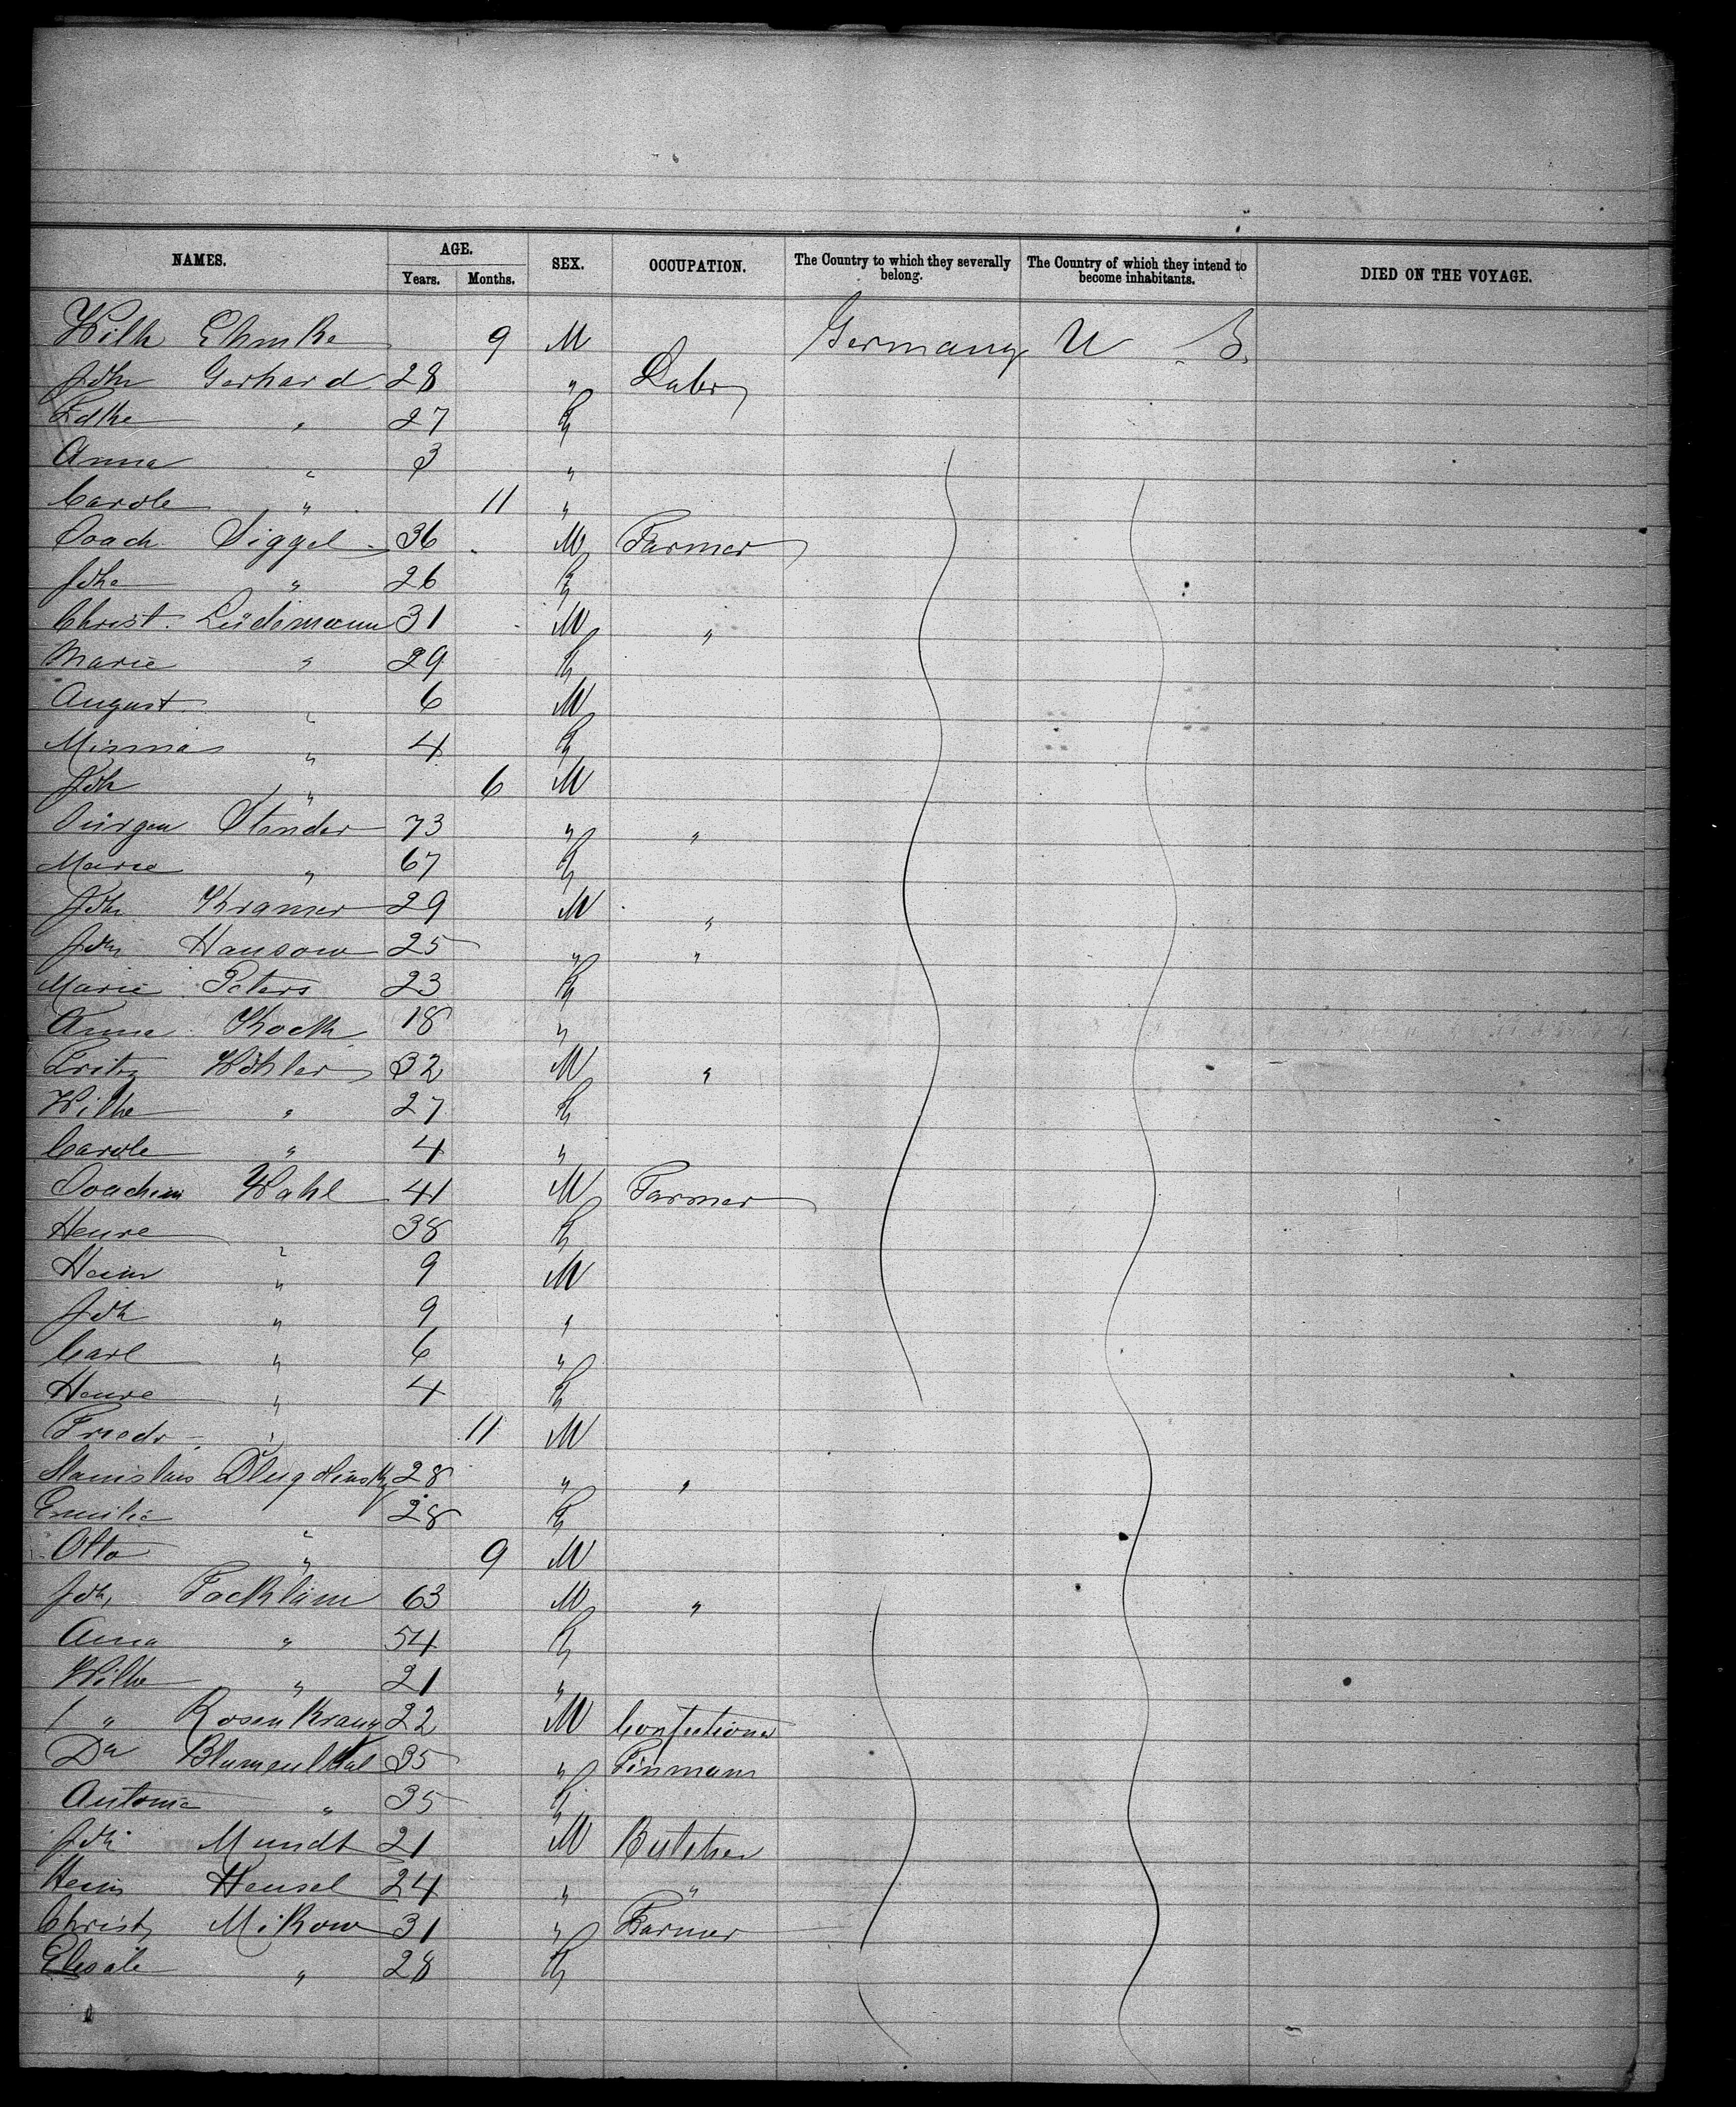 NAMES. AGE. SEX. OCCUPATION. The Country to which they severally belong. The Country of which they intend to become inhabitants. DIED ON THE VOYAGE.
Years. Months.
Wilh Ehmke 9 M Germany U S.
Joh Gerhard 28 " Labr
" 27 F
Anna " 3 "
Carole " 11 "
Joach Siggel 36 M Farmer
Johe " 26 F
Christ. Lüdemann 31 M "
Marie " 29 F
August " 6 M
Minna " 4 F
Joh " 6 M
Jürgen Stender 73 " "
Marie " 67 F
Joh Kramer 29 M "
Joh Hansow 25 " "
Marie Peters 23 F
Anna Koch 18 "
Fritz Köhler 32 M "
Wilhe " 27 F
Carole " 4 "
Joachim Wahl 41 M Farmer
Henre " 38 F
Heinr " 9 M
Joh " 9 "
Carl " 6 "
Henre " 4 F
Friedr " 11 M
Stanislaus 28 " "
Emilie " 28 F
Otto " 9 M
Joh Facklam 63 M "
Anna " 54 F
Wilhe " 21 "
" Rosenkranz 22 M Confectioner
Blumenthal 35 " Tinmann
Antonie " 35 F
Joh Mundt 21 M Butcher
Heinr Hensel 24 " "
Christ Mikow 31 " Farmer
" 28 F